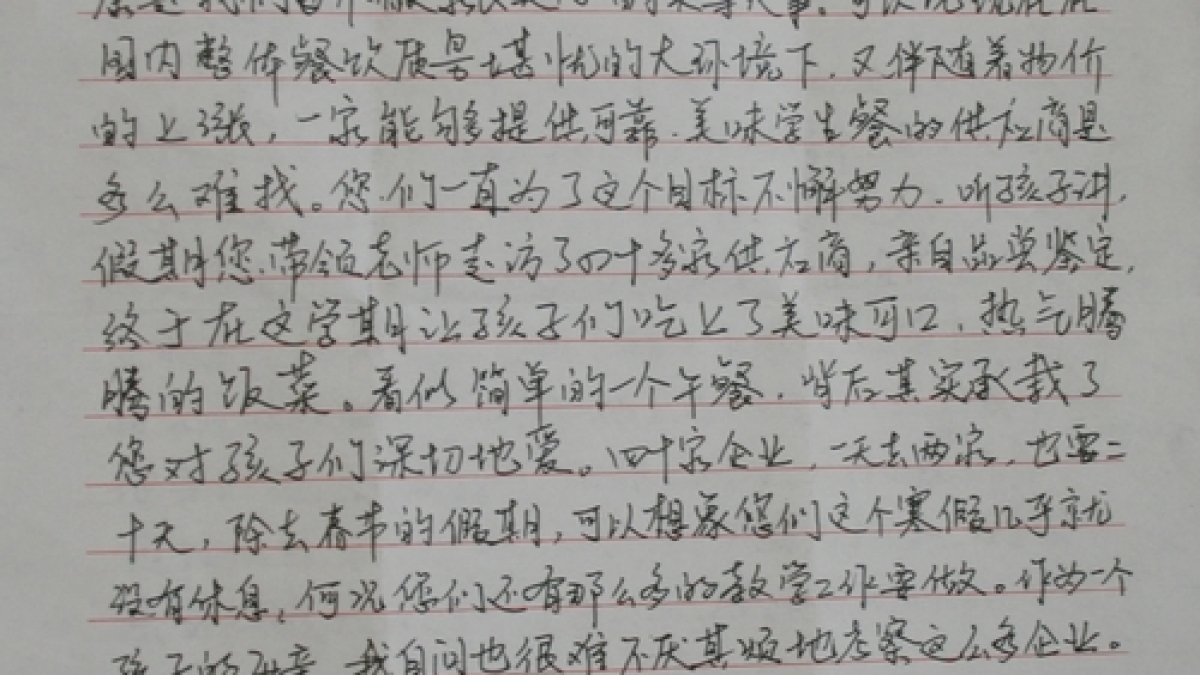 国内整体餐饮质量堪忧的大环境下，又伴随着物价
的上涨，一家能够提供可靠、美味学生餐的供应商是
多么难找。您们一直为了这个目标不懈努力。听孩子讲，
假期您带领老师走访了四十多家供应商，亲自品尝鉴定，
终于在这学期让孩子们吃上了美味可口、热气腾
腾的饭菜。看似简单的一个午餐，背后其实承载了
您对孩子们深切地爱。四十家企业，一天去两家，也要二
十天，除去春节的假期，可以想象您们这个寒假几乎就
没有休息，何况您们还有那么多的教学工作要做。作为一个
孩子的母亲，我自问也很难不厌其烦地考察这么多企业。